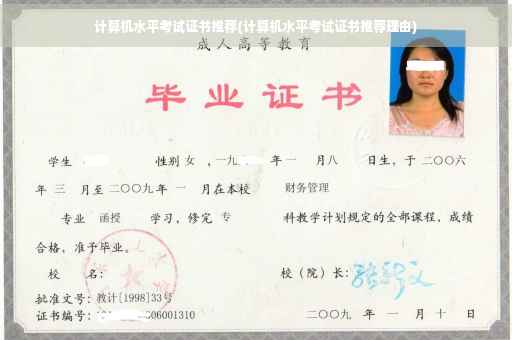 计算机水平考试证书推荐(计算机水平考试证书推荐理由)
成人高等教育
毕业证书
学生 性别 女 ,一九 年一 月八 日生,于二〇〇六
年 三 月至二〇〇九年 一 月在本校 财务管理
专业 函授 学习,修完 专 科教学计划规定的全部课程,成绩
合格,准予毕业。
校 名: 校(院)长:
批准文号:教计[1998]33号
证书编号: 06001310 二〇〇九 年 一 月 十 日